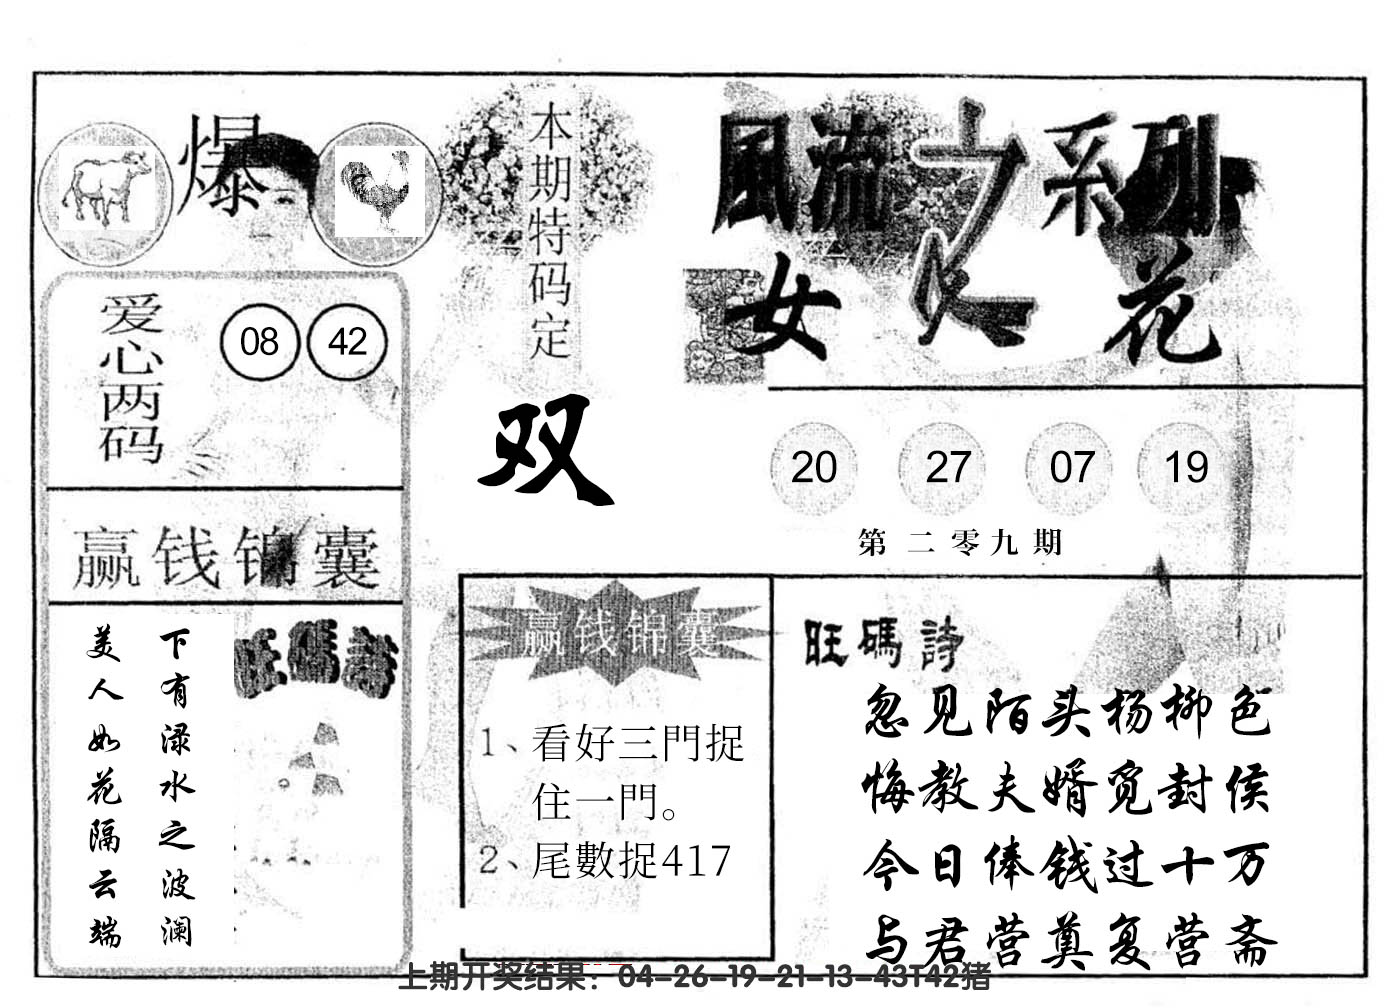 爆
爱心两码
08 42
赢钱锦囊
旺碼詩
下有渌水之波澜
美人如花隔云端
本期特码定
双
風流之系列
女人花
20 27 07 19
第二零九期
赢钱锦囊
1、看好三門捉
住一門。
2、尾數捉417
旺碼詩
忽见陌头杨柳色
悔教夫婿觅封侯
今日俸钱过十万
与君营奠复营斋
上期开奖结果：04-26-19-21-13-43T42猪